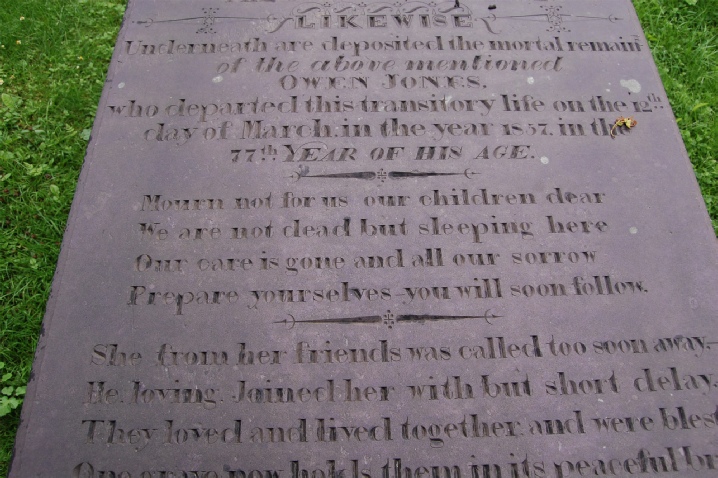 LIKEWISE
Underneath are deposited the mortal remain
of the above mentioned
OWEN JONES.
who departed this transitory life on the 12th
day of March, in the year 1857, in the
77th YEAR OF HIS AGE.
Mourn not for us our children dear
We are not dead but sleeping here
Our care is gone and all our sorrow
Prepare yourselves—you will soon follow.
She from her friends was called too soon away,—
He, loving, Joined her with but short delay,
They loved and lived together and were bles
One grave now holds them in its peaceful br